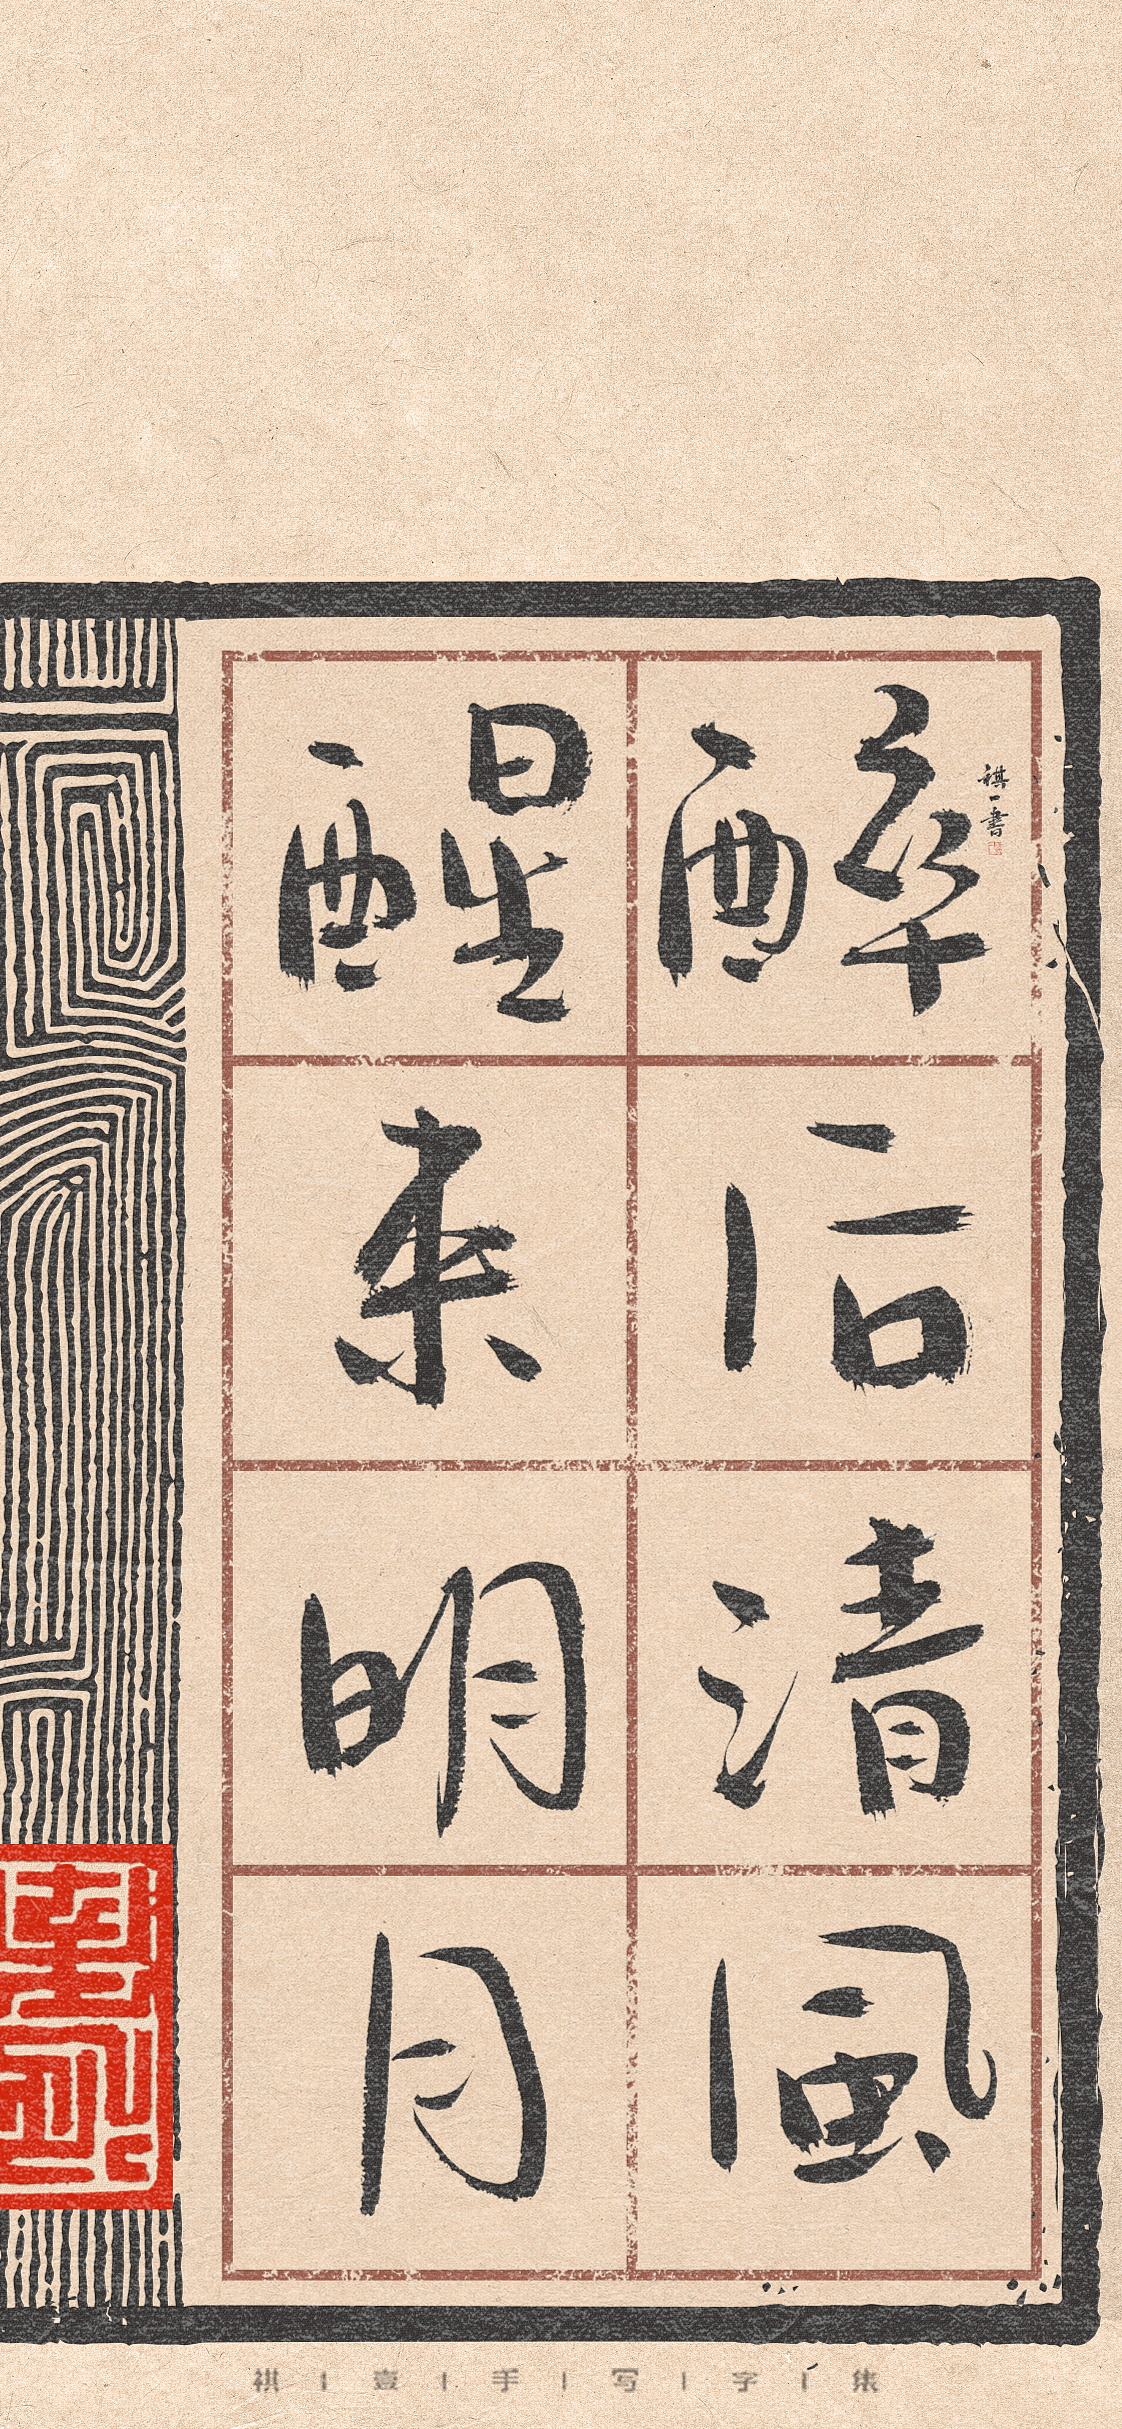 醉后清风
醒来明月
祺一書
祺|壹|手|写|字|集